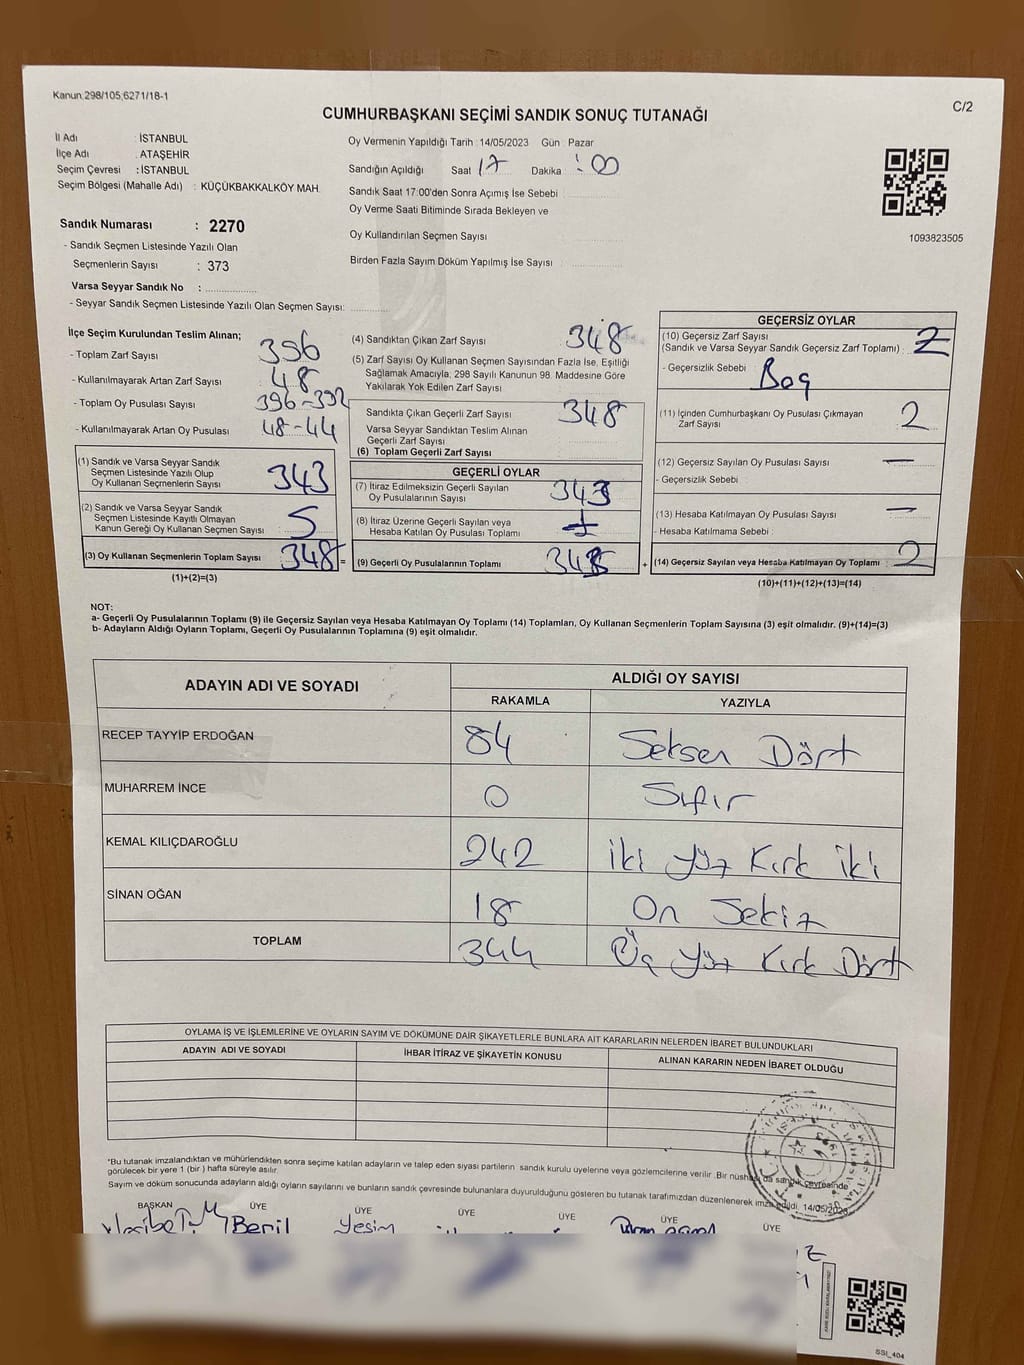 Kanun:298/105,6271/18-1
C/2
CUMHURBAŞKANI SEÇİMİ SANDIK SONUÇ TUTANAĞI
İl Adı : İSTANBUL
İlçe Adı : ATAŞEHİR
Seçim Çevresi : İSTANBUL
Seçim Bölgesi (Mahalle Adı) : KÜÇÜKBAKKALKÖY MAH.
Sandık Numarası : 2270
- Sandık Seçmen Listesinde Yazılı Olan
Seçmenlerin Sayısı : 373
Varsa Seyyar Sandık No :
- Seyyar Sandık Seçmen Listesinde Yazılı Olan Seçmen Sayısı:
Oy Vermenin Yapıldığı Tarih : 14/05/2023 Gün : Pazar
Sandığın Açıldığı Saat 17 Dakika : 00
Sandık Saat 17:00'den Sonra Açımış İse Sebebi :
Oy Verme Saati Bitiminde Sırada Bekleyen ve
Oy Kullandırılan Seçmen Sayısı
Birden Fazla Sayım Döküm Yapılmış İse Sayısı :
1093823505
İlçe Seçim Kurulundan Teslim Alınan;
- Toplam Zarf Sayısı : 396
- Kullanılmayarak Artan Zarf Sayısı : 48
- Toplam Oy Pusulası Sayısı : 396-392
- Kullanılmayarak Artan Oy Pusulası : 48-44
(1) Sandık ve Varsa Seyyar Sandık
Seçmen Listesinde Yazılı Olup
Oy Kullanan Seçmenlerin Sayısı : 343
(2) Sandık ve Varsa Seyyar Sandık
Seçmen Listesinde Kayıtlı Olmayan
Kanun Gereği Oy Kullanan Seçmen Sayısı : 5
(3) Oy Kullanan Seçmenlerin Toplam Sayısı : 348
(1)+(2)=(3)
(4) Sandıktan Çıkan Zarf Sayısı : 348
(5) Zarf Sayısı Oy Kullanan Seçmen Sayısından Fazla İse, Eşitliği
Sağlamak Amacıyla, 298 Sayılı Kanunun 98. Maddesine Göre
Yakılarak Yok Edilen Zarf Sayısı :
Sandıkta Çıkan Geçerli Zarf Sayısı : 348
Varsa Seyyar Sandıktan Teslim Alınan
Geçerli Zarf Sayısı :
(6) Toplam Geçerli Zarf Sayısı :
GEÇERLİ OYLAR
(7) İtiraz Edilmeksizin Geçerli Sayılan
Oy Pusulalarının Sayısı : 343
(8) İtiraz Üzerine Geçerli Sayılan veya
Hesaba Katılan Oy Pusulası Toplamı :
= (9) Geçerli Oy Pusulalarının Toplamı :
GEÇERSİZ OYLAR
(10) Geçersiz Zarf Sayısı
(Sandık ve Varsa Seyyar Sandık Geçersiz Zarf Toplamı) :
- Geçersizlik Sebebi : Boş
(11) İçinden Cumhurbaşkanı Oy Pusulası Çıkmayan
Zarf Sayısı : 2
(12) Geçersiz Sayılan Oy Pusulası Sayısı : —
- Geçersizlik Sebebi :
(13) Hesaba Katılmayan Oy Pusulası Sayısı : —
- Hesaba Katılmama Sebebi :
+ (14) Geçersiz Sayılan veya Hesaba Katılmayan Oy Toplamı : 2
(10)+(11)+(12)+(13)=(14)
NOT:
a- Geçerli Oy Pusulalarının Toplamı (9) ile Geçersiz Sayılan veya Hesaba Katılmayan Oy Toplamı (14) Toplamları, Oy Kullanan Seçmenlerin Toplam Sayısına (3) eşit olmalıdır. (9)+(14)=(3)
b- Adayların Aldığı Oyların Toplamı, Geçerli Oy Pusulalarının Toplamına (9) eşit olmalıdır.
ADAYIN ADI VE SOYADI ALDIĞI OY SAYISI
RAKAMLA YAZIYLA
RECEP TAYYİP ERDOĞAN 84 Seksen Dört
MUHARREM İNCE 0 Sıfır
KEMAL KILIÇDAROĞLU 242 İki yüz Kırk iki
SİNAN OĞAN 18 On Sekiz
TOPLAM 344 Üç yüz Kırk Dört
OYLAMA İŞ VE İŞLEMLERİNE VE OYLARIN SAYIM VE DÖKÜMÜNE DAİR ŞİKAYETLERLE BUNLARA AİT KARARLARIN NELERDEN İBARET BULUNDUKLARI
ADAYIN ADI VE SOYADI İHBAR İTİRAZ VE ŞİKAYETİN KONUSU ALINAN KARARIN NEDEN İBARET OLDUĞU
*Bu tutanak imzalandıktan ve mühürlendikten sonra seçime katılan adayların ve talep eden siyasi partilerin sandık kurulu üyelerine veya gözlemcilerine verilir. Bir nüshası da sandık çevresinde
görülecek bir yere 1 (bir ) hafta süreyle asılır.
Sayım ve döküm sonucunda adayların aldığı oyların sayılarını ve bunların sandık çevresinde bulunanlara duyurulduğunu gösteren bu tutanak tarafımızdan düzenlenerek imza edildi. 14/05/2023
BAŞKAN ÜYE ÜYE ÜYE ÜYE ÜYE ÜYE
Beril Yeşim
SSI_404